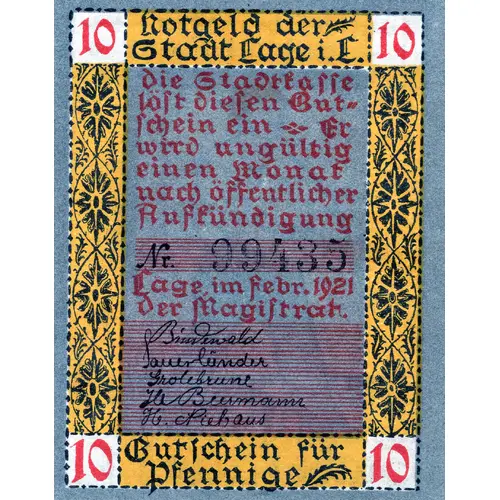 10 Notgeld der 10
Stadt Lage i. L.
die Stadtkasse
löst diesen Gut-
schein ein Er
wird ungültig
einen Monat
nach öffentlicher
Aufkündigung
Nr. 99435
Lage, im febr. 1921
der Magistrat.
Bindewald
Sauerländer
Grotebrune
H. Beumann
H. Niehaus
10 Gutschein für 10
Pfennige